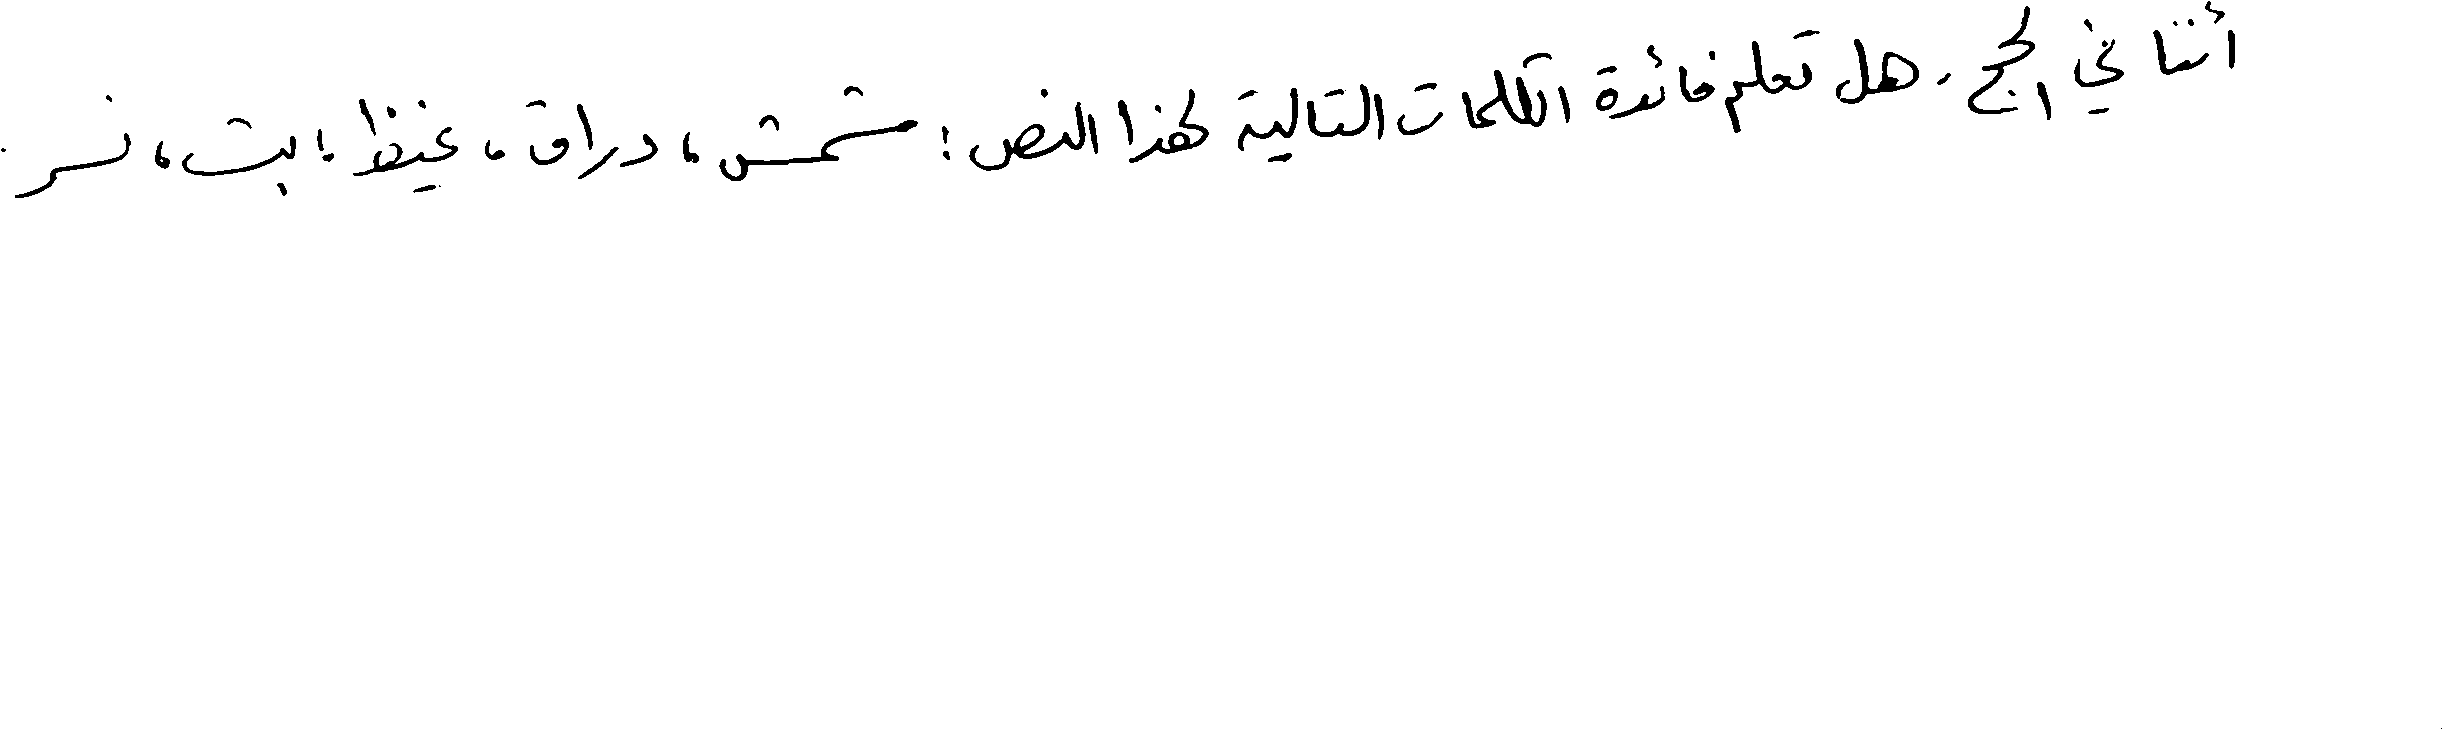 أتتنا في الحج. هل تعلم فائدة الكلمات التالية لهذا النص: مشمش، دراق، غيظ، بت، نسر.